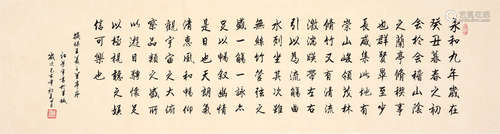 永和九年歲在
癸丑暮春之初
會於會稽山陰
之蘭亭脩稧事
也群賢畢至少
長咸集此地有
崇山峻領茂林
脩竹又有清流
激湍暎帶左右
引以為流觴曲
水列坐其次雖
無絲竹管弦之
盛一觴一詠亦
足以暢敘幽情
是日也天朗氣
清惠風和暢仰
觀宇宙之大俯
察品類之盛所
以遊目騁懷足
以極視聽之娛
信可樂也
王羲之蘭亭序